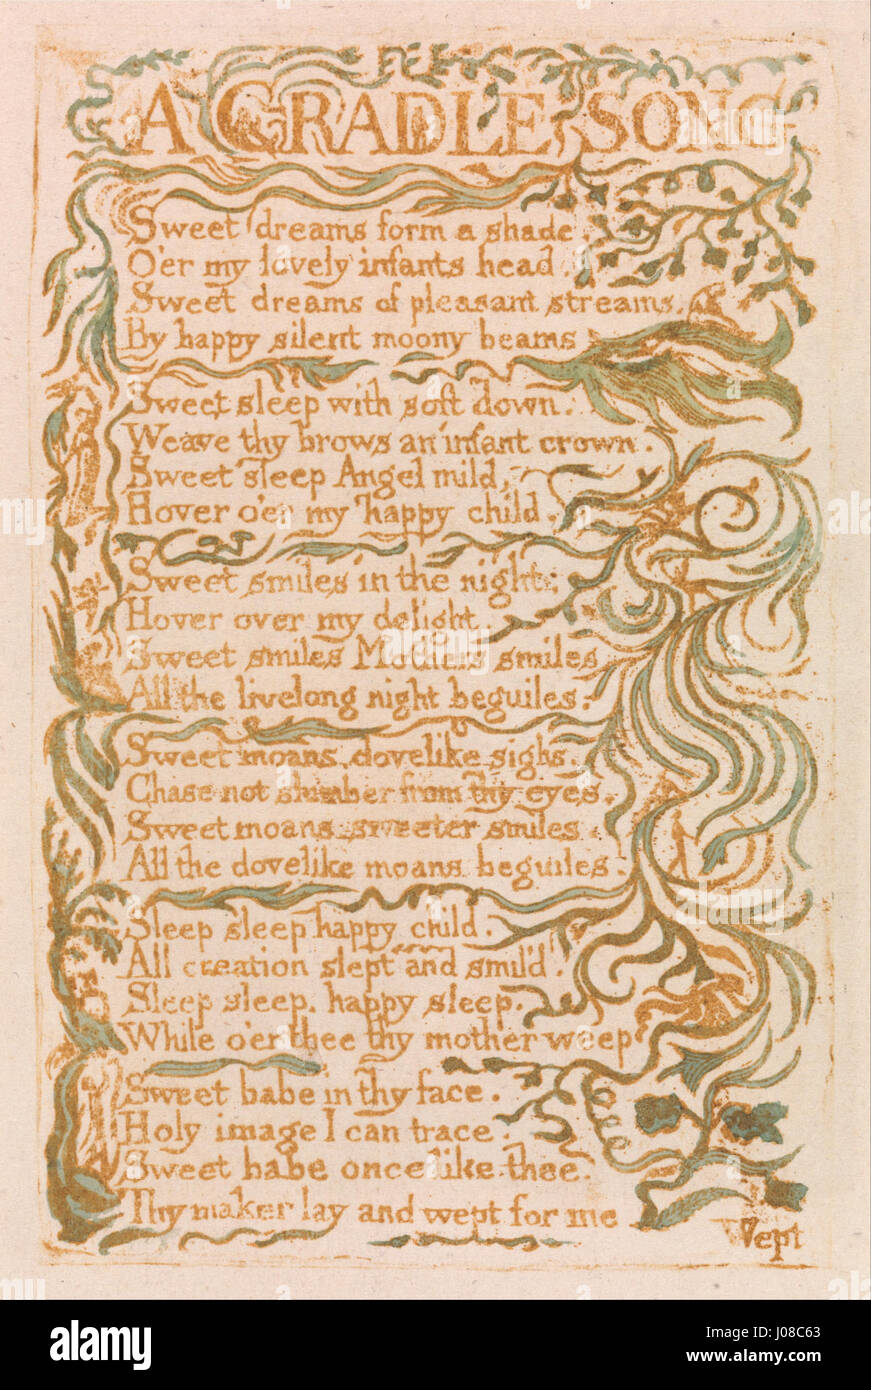 A CRADLE SONG
Sweet dreams form a shade.
O'er my lovely infants head.
Sweet dreams of pleasant streams.
By happy silent moony beams
Sweet sleep with soft down.
Weave thy brows an infant crown.
Sweet sleep Angel mild,
Hover o'er my happy child.
Sweet smiles in the night,
Hover over my delight.
Sweet smiles Mothers smiles
All the livelong night beguiles.
Sweet moans, dovelike sighs.
Chase not slumber from thy eyes.
Sweet moans, sweeter smiles
All the dovelike moans beguiles.
Sleep sleep happy child.
All creation slept and smil'd.
Sleep sleep, happy sleep.
While o'er thee thy mother weep
Sweet babe in thy face.
Holy image I can trace.
Sweet babe once like thee.
Thy maker lay and wept for me
Wept
alamy
alamy
Image ID: J08C63
www.alamy.com